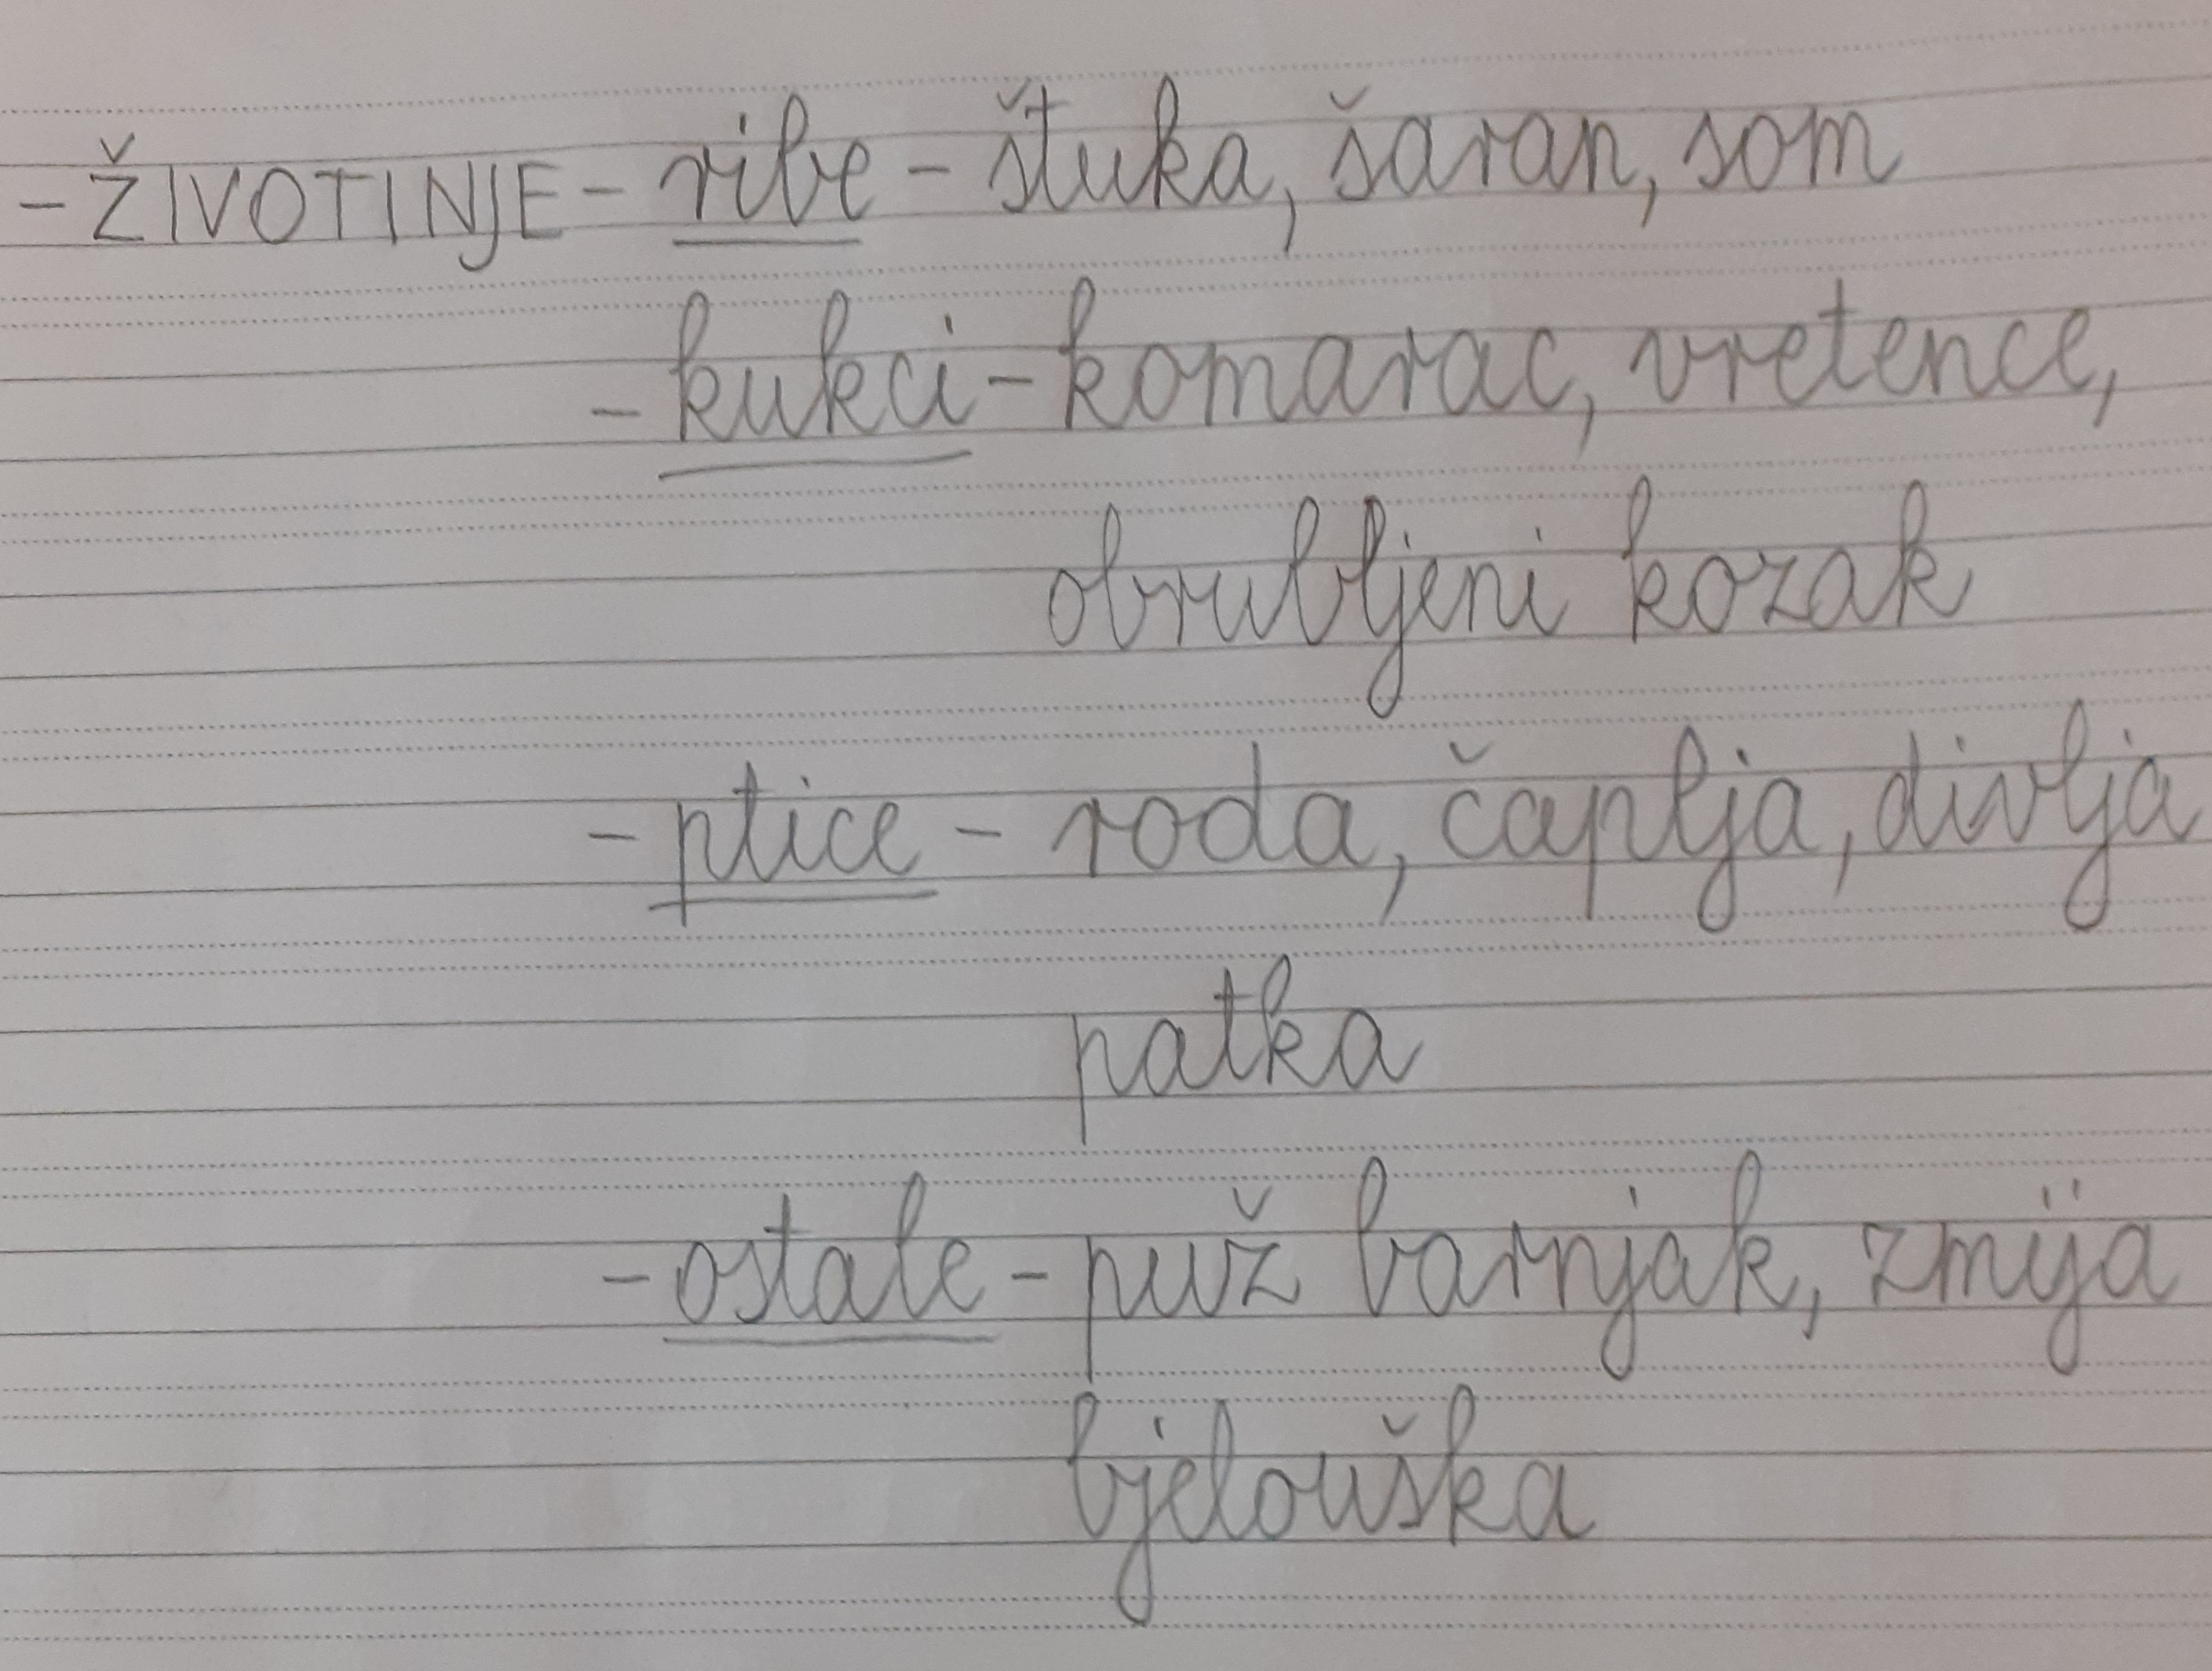 - ŽIVOTINJE - ribe - štuka, šaran, som
- kukci - komarac, vretence,
obrubljeni kozak
- ptice - roda, čaplja, divlja
patka
- ostale - puž barnjak, zmija
bjelouška